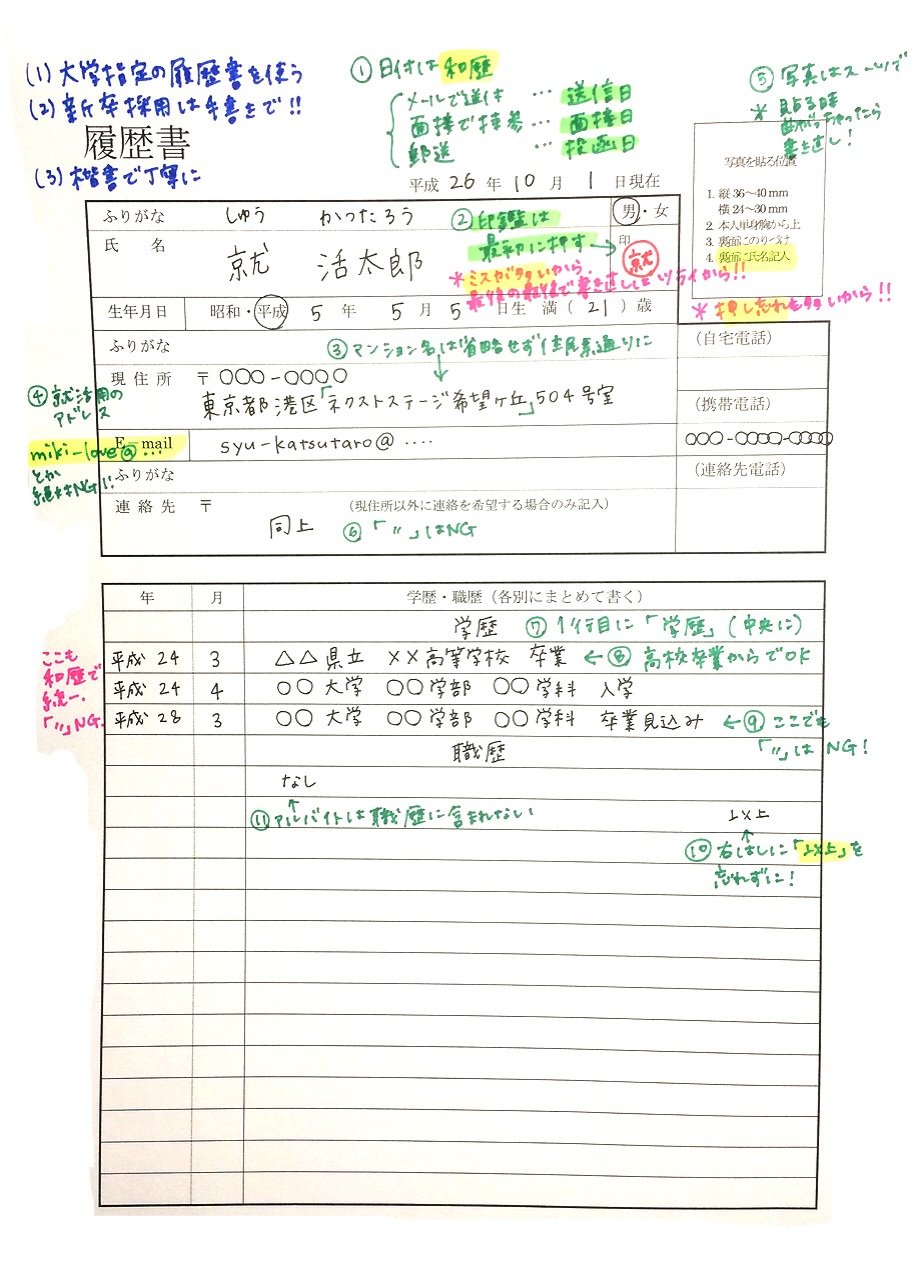 (1) 大学指定の履歴書を使う
(2) 新卒採用は手書きで!!
履歴書
(3) 楷書で丁寧に
① 日付は和歴
メールで送付 … 送信日
面接で持参 … 面接日
郵送 … 投函日
平成 26 年 10 月 1 日現在
⑤ 写真はスーツで
* 貼る時
曲がっちゃったら
書き直し!
写真を貼る位置
1. 縦 36～40 mm
横 24～30 mm
2. 本人単身胸から上
3. 裏面にのりづけ
4. 裏面に氏名記入
* 押し忘れも多いから!!
ふりがな しゅう かつたろう
男・女
氏 名 就 活太郎
印
就
② 印鑑は
最初に押す→
* ミスが多いから、
最後の最後で書き直しはツライから!!
生年月日 昭和・平成 5 年 5 月 5 日生 満 ( 21 ) 歳
ふりがな
③ マンション名は省略せず住民票通りに
(自宅電話)
現住所 〒○○○-○○○○
東京都港区「ネクストステージ希望ヶ丘」504号室
(携帯電話)
○○○-○○○○-○○○○
④ 就活用の
アドレス
miki-love@…
とか
絶対NG!!
E-mail syu-katsutaro@ ‥‥
ふりがな
(連絡先電話)
連絡先 〒 (現住所以外に連絡を希望する場合のみ記入)
同上 ⑥「〃」はNG
年 月 学歴・職歴 (各別にまとめて書く)
学歴 ⑦ 1行目に「学歴」(中央に)
平成 24 3 △△県立 ××高等学校 卒業 ←⑧ 高校卒業からでOK
平成 24 4 ○○大学 ○○学部 ○○学科 入学
平成 28 3 ○○大学 ○○学部 ○○学科 卒業見込み ←⑨ ここでも
「〃」はNG!
ここも
和歴で
統一.
「〃」NG.
職歴
なし
↑
⑪ アルバイトは職歴に含まれない
以上
↑
⑩ 右はしに「以上」を
忘れずに!